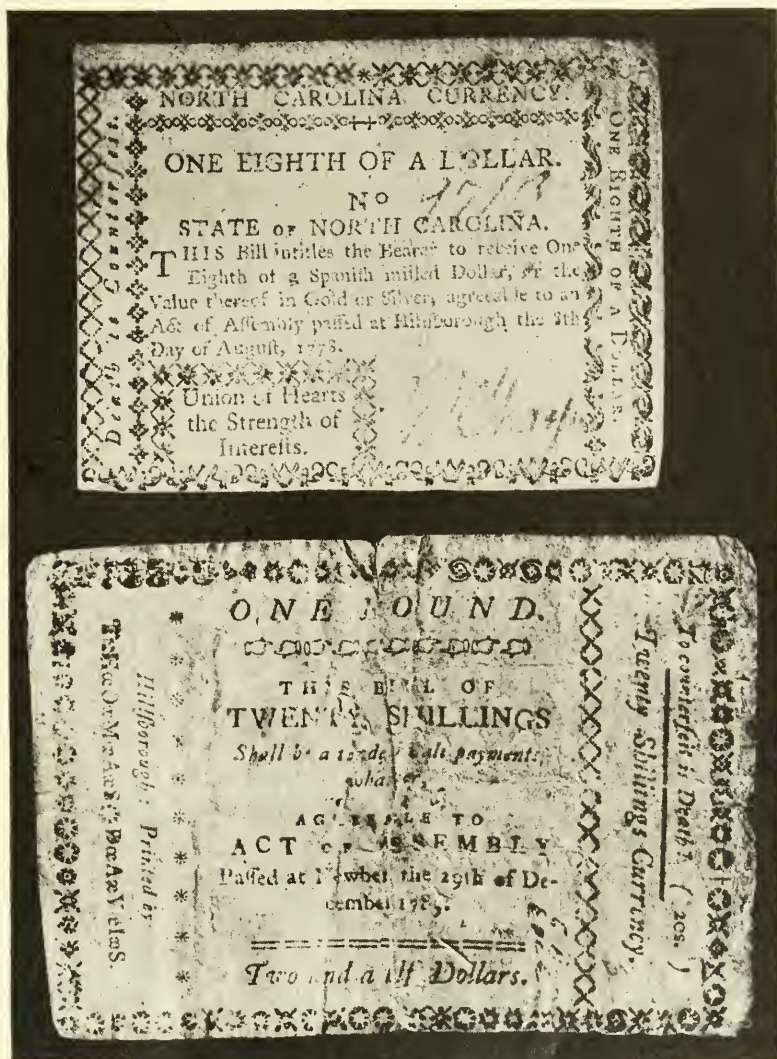 NORTH CAROLINA CURRENCY.
ONE EIGHTH OF A DOLLAR.
Nº
STATE OF NORTH CAROLINA.
THIS Bill intitles the Bearer to receive One
Eighth of a Spaniſh milled Dollar, or the
Value thereof in Gold or Silver, agreeable to an
Act of Aſſembly paſſed at Hillſborough the 8th
Day of August, 1778.
Union of Hearts
the Strength of
Intereſts.
Death to Counterfeit.
ONE EIGHTH OF A DOLLAR.
ONE POUND.
THIS BILL OF
TWENTY SHILLINGS
Shall be a tender in all payments
AGREEABLE TO
ACT OF ASSEMBLY
Paſſed at Newbern the 29th of De-
cember 1785.
Two and a Half Dollars.
Hillſborough: Printed by
To counterfeit is Death. (20s.)
Twenty Shillings Currency.